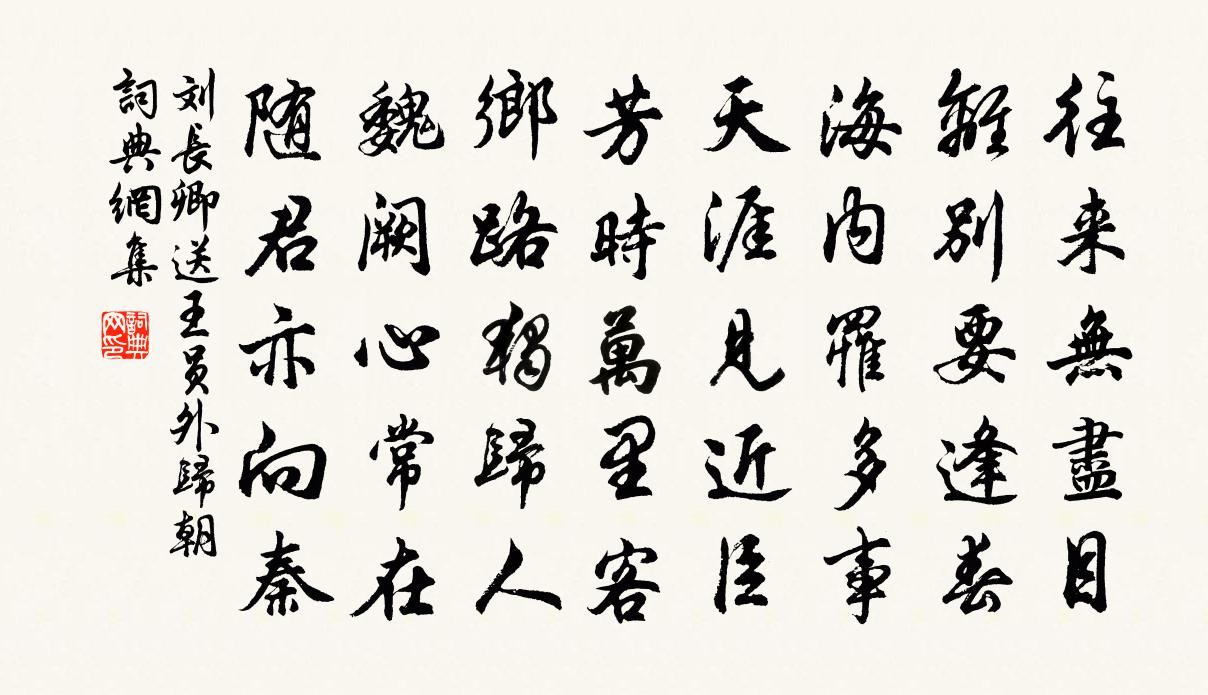 往来無盡目
離別要逢春
海内罹多事
天涯見近臣
芳時萬里客
鄉路獨歸人
魏闕心常在
随君亦向秦
刘長卿送王员外歸朝
詞典網集
詞典网印